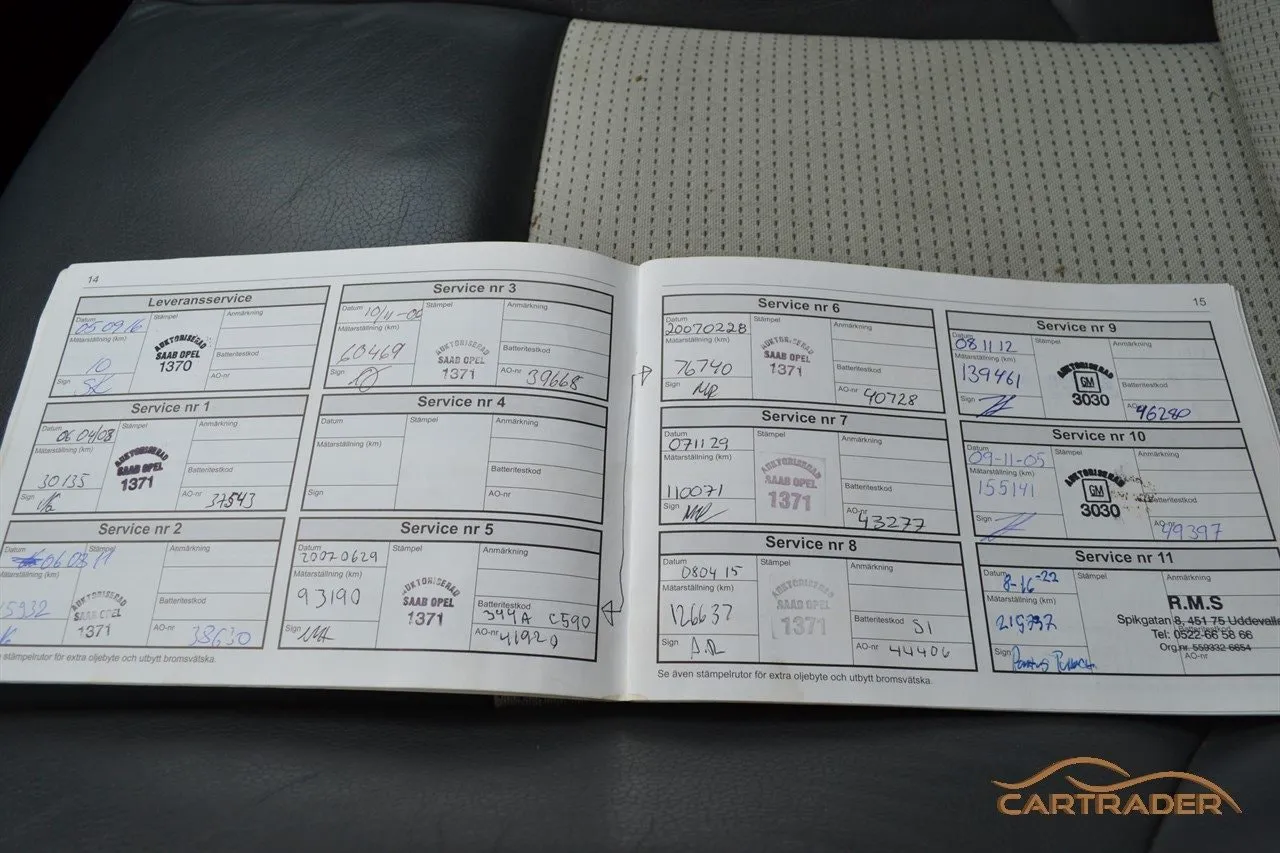 14
Leveransservice
Datum
05 09 16
Stämpel
Anmärkning
Mätarställning (km)
10
AUKTORISERAD
SAAB OPEL
1370
Batteritestkod
Sign
AO-nr
Service nr 1
Datum
06 04/08
Stämpel
Anmärkning
Mätarställning (km)
30135
AUKTORISERAD
SAAB OPEL
1371
Batteritestkod
Sign
AO-nr
37543
Service nr 2
Datum
Stämpel
Anmärkning
Mätarställning (km)
AUKTORISERAD
SAAB OPEL
1371
Batteritestkod
AO-nr
38630
stämpelrutor för extra oljebyte och utbytt bromsvätska.
Service nr 3
Datum
Stämpel
Anmärkning
Mätarställning (km)
60469
AUKTORISERAD
SAAB OPEL
1371
Batteritestkod
Sign
AO-nr
39668
Service nr 4
Datum
Stämpel
Anmärkning
Mätarställning (km)
Batteritestkod
Sign
AO-nr
Service nr 5
Datum
20070629
Stämpel
Anmärkning
Mätarställning (km)
93190
AUKTORISERAD
SAAB OPEL
1371
Batteritestkod
344A C590
Sign
AO-nr
41920
15
Service nr 6
Datum
20070228
Stämpel
Anmärkning
Mätarställning (km)
76740
AUKTORISERAD
SAAB OPEL
1371
Batteritestkod
Sign
AO-nr
40728
Service nr 7
Datum
071129
Stämpel
Anmärkning
Mätarställning (km)
110071
AUKTORISERAD
SAAB OPEL
1371
Batteritestkod
Sign
AO-nr
43277
Service nr 8
Datum
080415
Stämpel
Anmärkning
Mätarställning (km)
126637
AUKTORISERAD
SAAB OPEL
1371
Batteritestkod
51
Sign
AO-nr
44406
Se även stämpelrutor för extra oljebyte och utbytt bromsvätska.
Service nr 9
Datum
081112
Stämpel
Anmärkning
Mätarställning (km)
139461
AUKTORISERAD
GM
3030
Batteritestkod
Sign
46240
Service nr 10
Datum
09-11-05
Stämpel
Anmärkning
Mätarställning (km)
155141
AUKTORISERAD
GM
3030
Batteritestkod
Sign
AO-nr
49397
Service nr 11
Datum
8-16-22
Stämpel
Anmärkning
Mätarställning (km)
R.M.S
Spikgatan 8, 451 75 Uddevalla
Tel: 0522-66 58 66
Org.nr. 559332-6654
Sign
AO-nr
CARTRADER